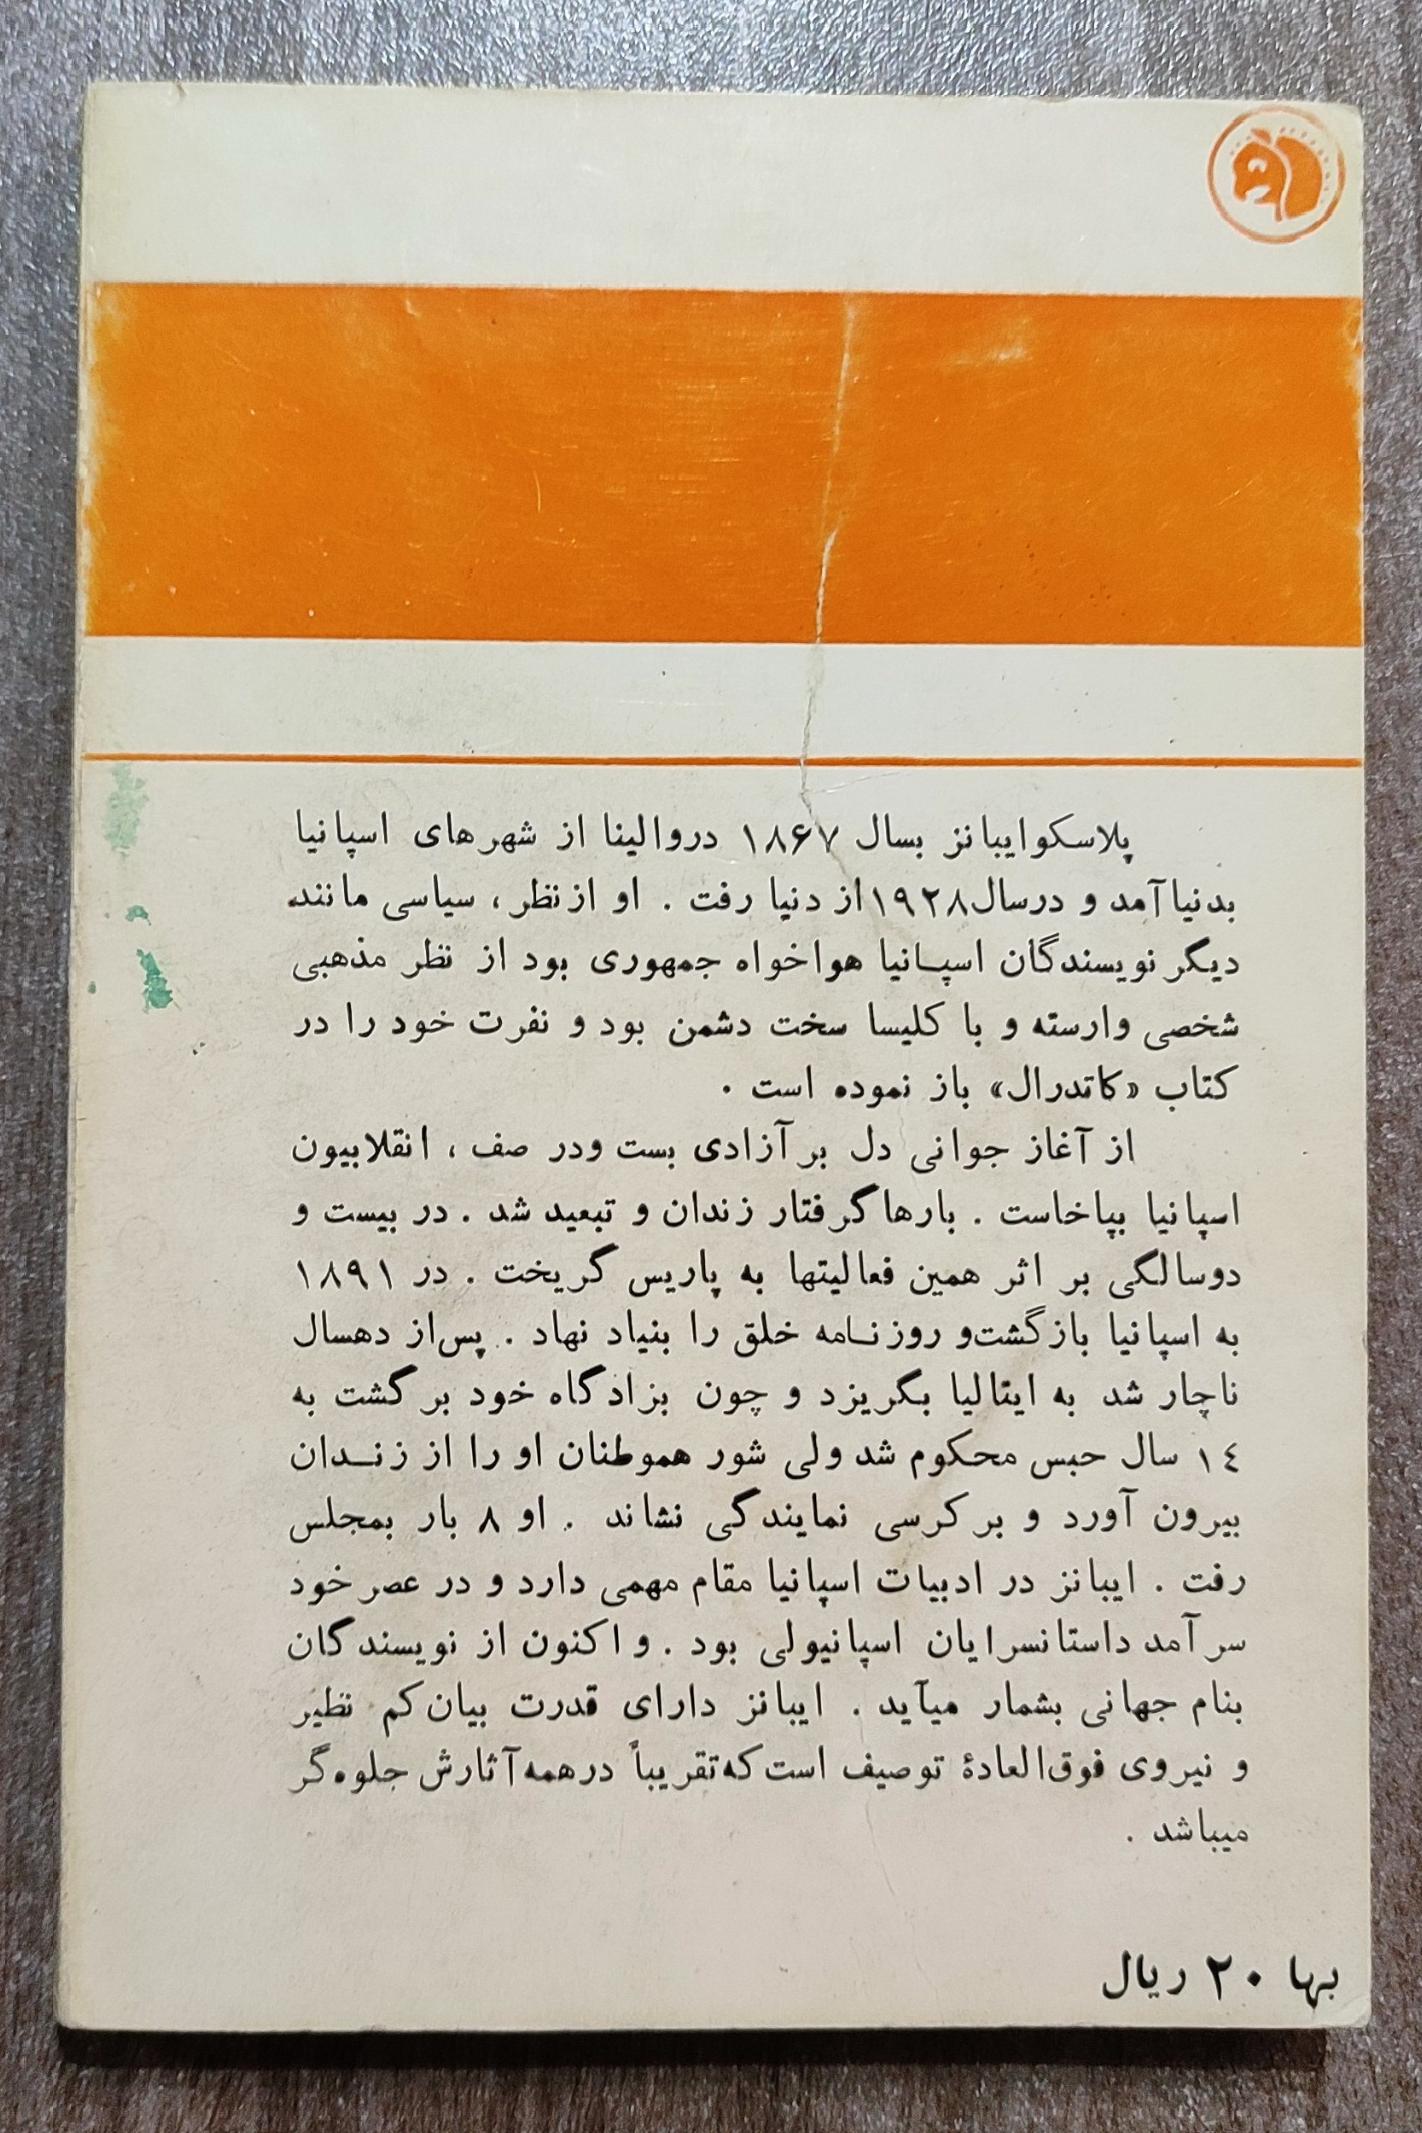 پلاسکوایبانز بسال ۱۸۶۷ دروالینا از شهرهای اسپانیا
بدنیاآمد و درسال۱۹۲۸از دنیا رفت . او ازنظر، سیاسی مانند
دیگر نویسندگان اسپـانیا هواخواه جمهوری بود از نظر مذهبی
شخصی وارسته و با کلیسا سخت دشمن بود و نفرت خود را در
کتاب «کاتدرال» باز نموده است .
از آغاز جوانی دل بر آزادی بست ودر صف ، انقلابیون
اسپانیا بپاخاست . بارها گرفتار زندان و تبعید شد . در بیست و
دوسالگی بر اثر همین فعالیتها به پاریس گریخت . در ۱۸۹۱
به اسپانیا بازگشت‌و روزنـامه خلق را بنیاد نهاد . پس‌از دهسال
ناچار شد به ایتالیا بگریزد و چون بزادگاه خود برگشت به
١٤ سال حبس محکوم شد ولی شور هموطنان او را از زنـدان
بیرون آورد و بر کرسی نمایندگی نشاند . او ۸ بار بمجلس
رفت . ایبانز در ادبیات اسپانیا مقام مهمی دارد و در عصر خود
سرآمد داستانسرایان اسپانیولی بود . و اکنون از نویسندگان
بنام جهانی بشمار میآید . ایبانز دارای قدرت بیان کم نظیر
و نیروی فوق‌العادهٔ توصیف است‌که‌تقریباً درهمه‌آثارش جلوه‌گر
میباشد .
بها ۲۰ ریال